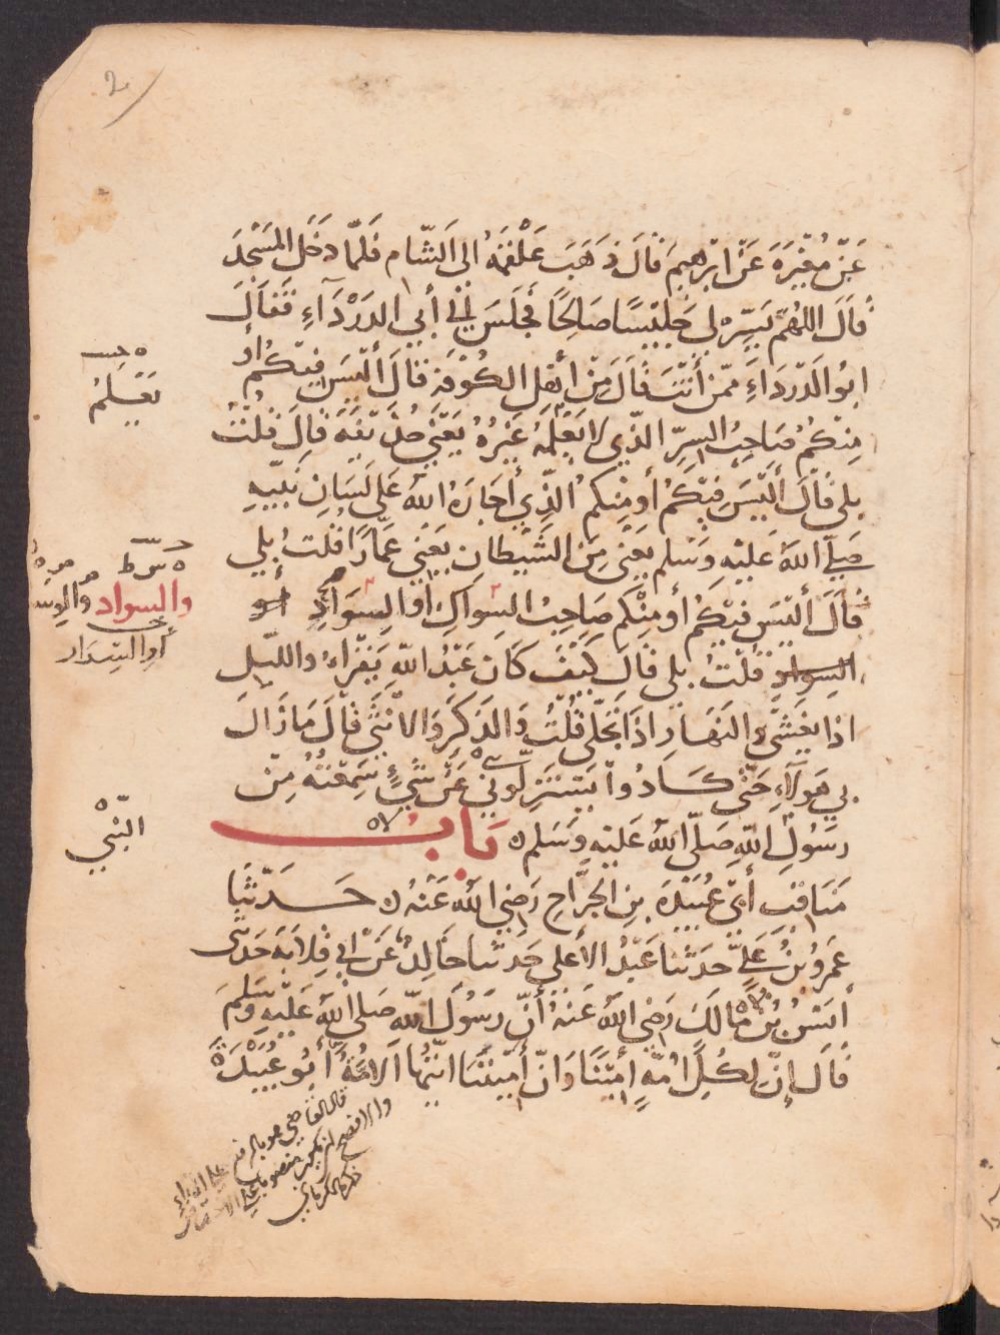 عَنْ مُغِيْرَةَ عَنْ ابْرٰهِيْمَ قَالَ ذَهَبَ عَلْقَمَةُ الى الشَّام فَلَمَّا دَخَلَ المَسْجِدَ
قَالَ اللهُمَّ يَسِّرْ لى جَلِيْسًا صَالِحًا فَجَلَسَ الى أبي الدَرْدَآءِ فَقَالَ
ابُو الدَّردَاءَ ممّن أَنْتَ قَالَ مِنْ أهْلِ الكُوْفَةِ قَالَ أَلَيْسَ فِيْكُمْ او
مِنْكُمْ صَاحِبُ السِرِّ الذّي لا يَعْلَمُهُ غَيْرُهُ يَعْنِي حُذَيْفَةَ قَالَ قُلْتُ
بلى قَالَ أَلَيْسَ فِيْكُمْ أو مِنْكمُ الذّي أَجَارَهُ اللهُ عَلى لِسَانِ نَبِيّهِ
صَلى اللهُ عَليْهِ وَسَلم يَعْنى مِنَ الشَّيْطانِ يَعْنِي عَمَّارًا قُلتُ بلي
قَالَ أَلَيْسَ فِيْكُمْ أو مِنْكم صَاحِبُ السِوَاكِ أو السِوَادِ أو
السوادِ قُلْتُ بلى قَالَ كَيْفَ كَانَ عَبْدُ اللهِ يَقْرَاءُ والليْل
اذا يغشَى والنَهَارِ اذَا تَجَلّى قُلْتُ وَالذَكَرَ وَالانْثَى قَالَ مَا زَالَ
بي هَوُلاَءِ حَتّى كَادُوا يَسْتَنْزِلُوني عَنْ شَيْءٍ سَمِعْتُهُ مِنْ
رَسُوْلِ اللهِ صَلّى اللهُ عَليْهِ وَسَلم ه بَابُ
مَنَاقِبِ أبِي عُبَيْدَةَ بنِ الجَرَّاحِ رَضِيَ اللهُ عَنْهُ حَدَّثَنَا
عَمرُو بْنُ عَلِيّ حدَثنا عَبْدُ الأعلى حَدثنا خَالِدٌ عَنْ ابى قِلابَةَ حَدثنى
أنَسُ بْنُ مَالكَ رَضِيَ اللهُ عَنْهُ أنّ رَسُوْلَ اللهِ صَلى اللهُ عَليْهِ وَسَلمَ
قَالَ إنّ لِكُلّ امّةٍ أمِيْنًا وَانّ أمِيْنَنَا ايّتُهَا الامّةُ أبُو عُبَيْدَةَ
يَعْلَمُ
والسواد
أو السِرَار
النّبي
قال القاضى هو بالرفع على النداء
والافصح ان يكون منصوبا على الاختصاص
ذكره الكرماني